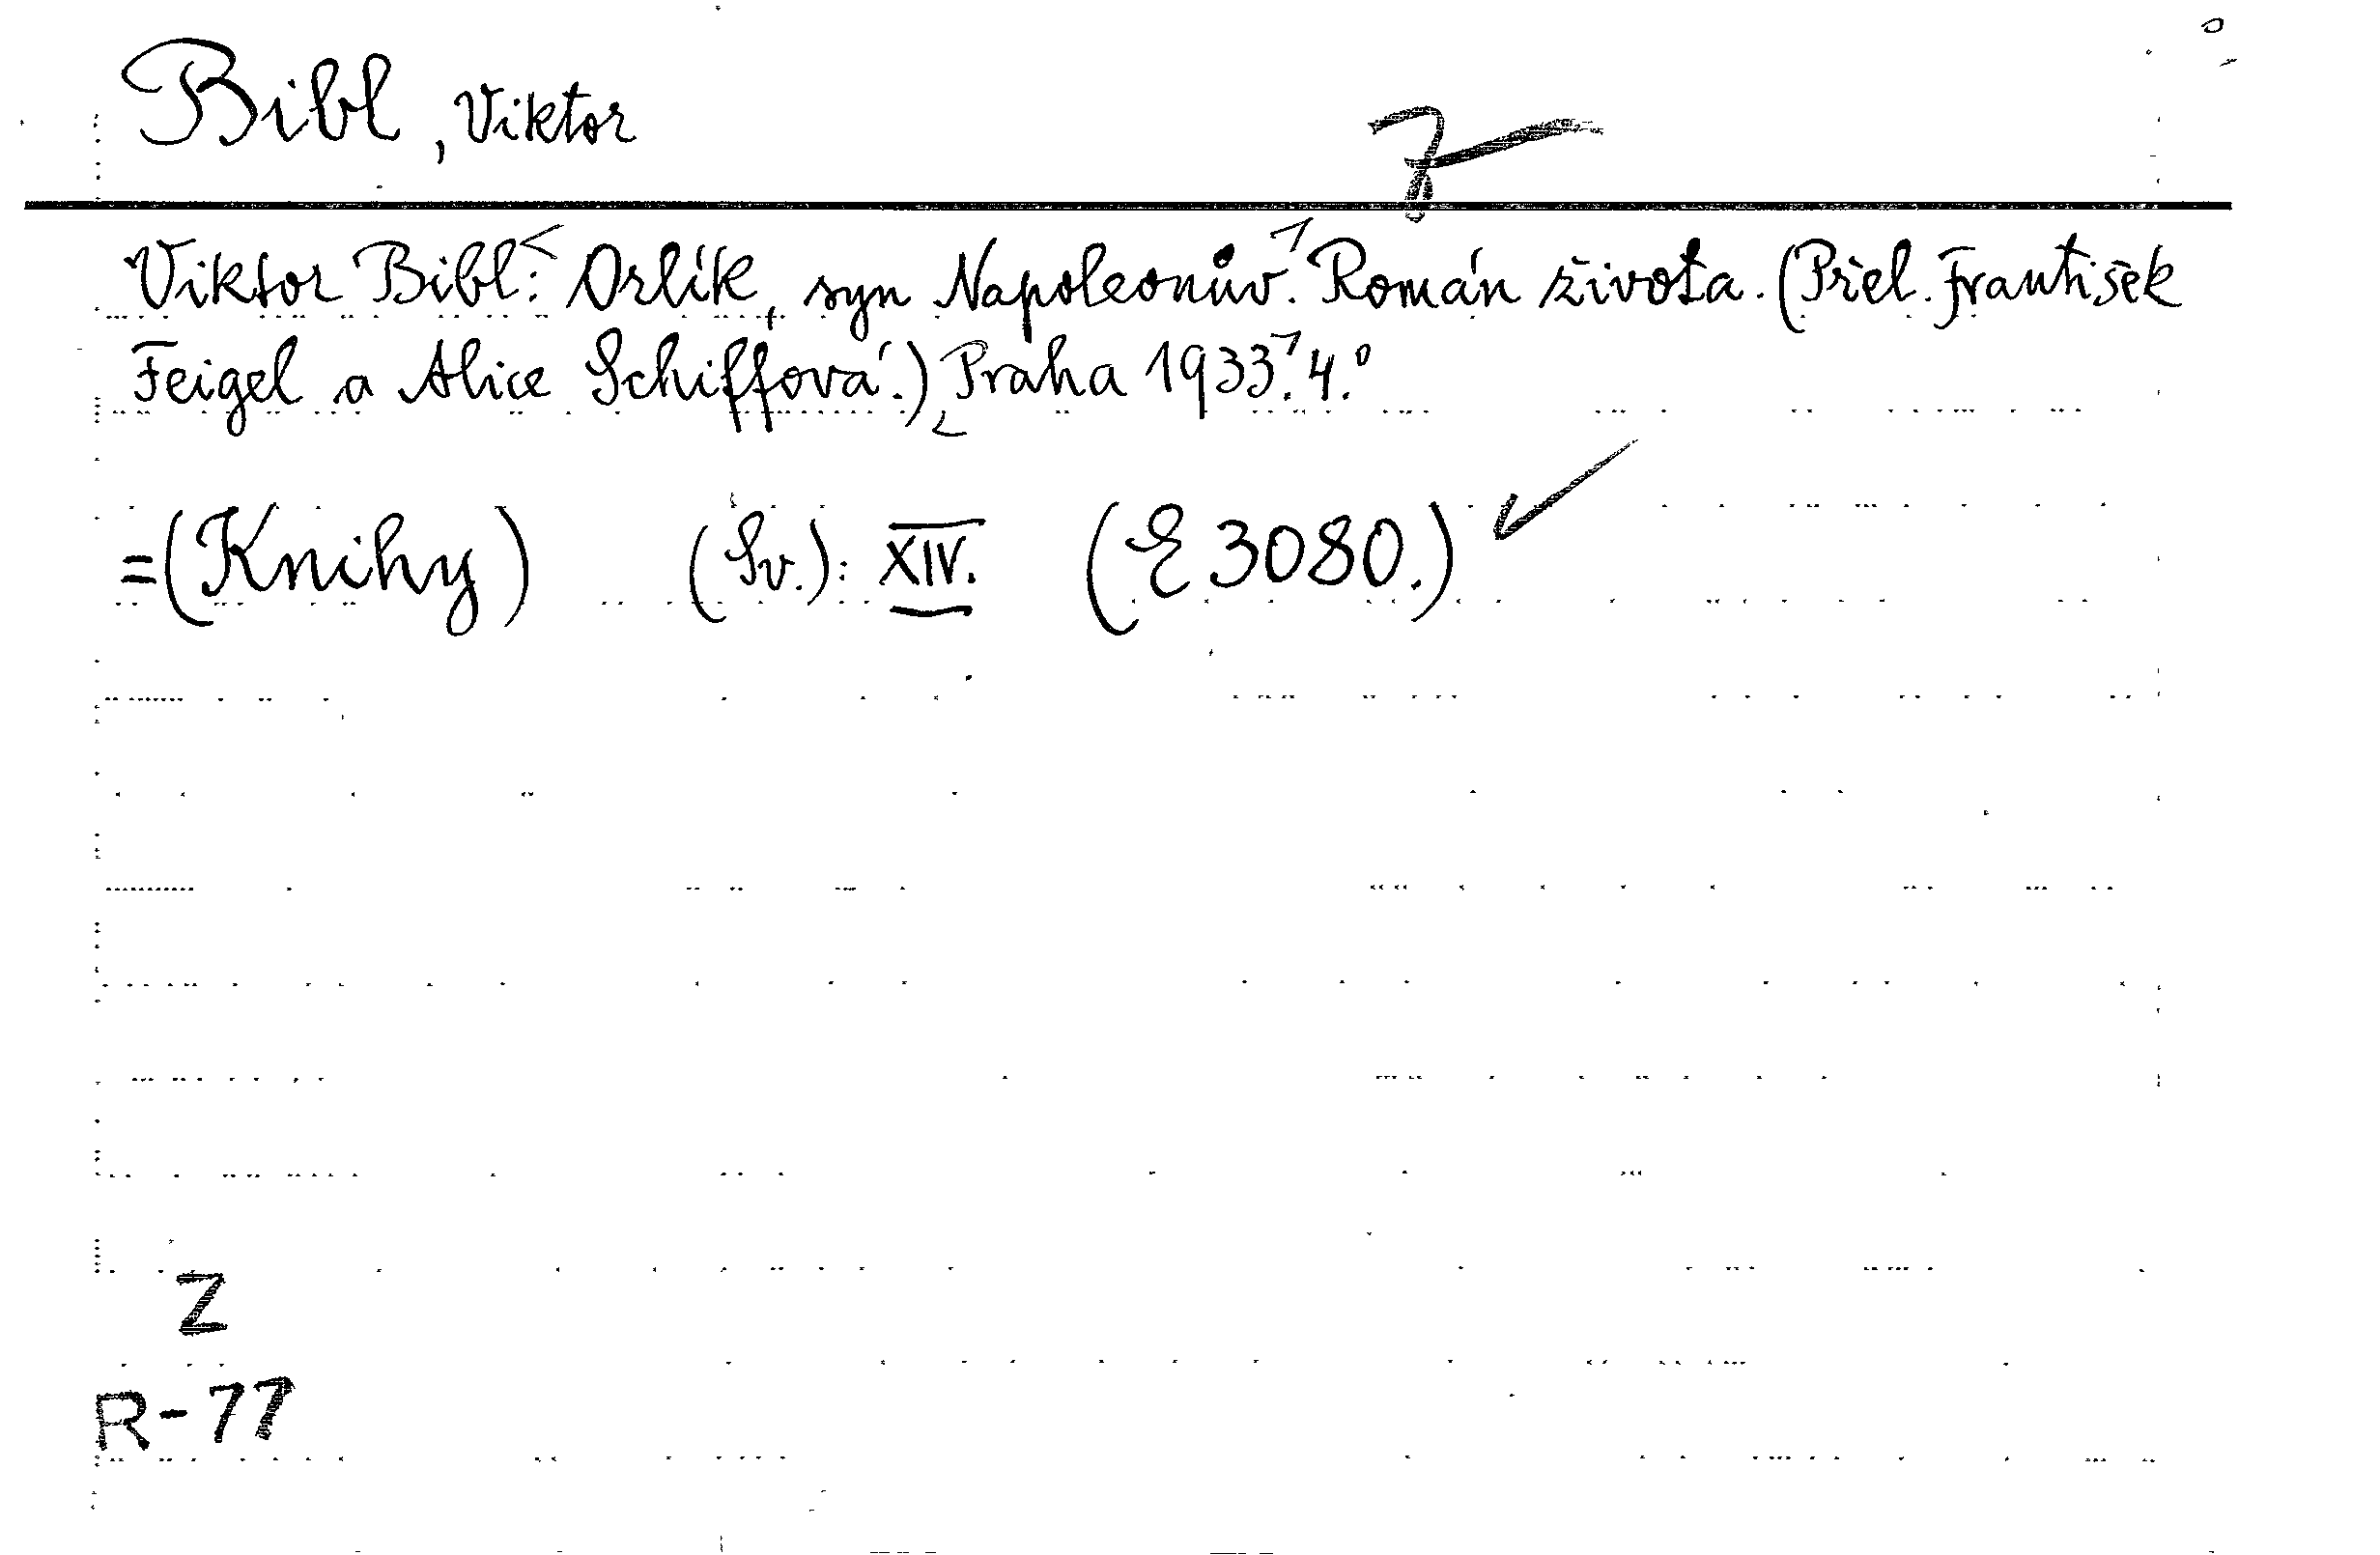 Bibl, Viktor
Viktor Bibl: Orlík, syn Napoleonův. Román života. (Přel. František
Feigel a Alice Schiffová.) Praha 1933. 4.°
=(Knihy) (Sv.): XIV. (E 3080.)
Z
R-77